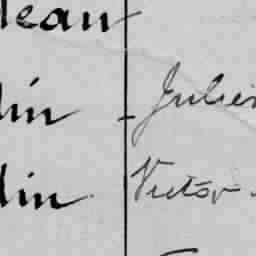 deau
din - Julien
din Victor -